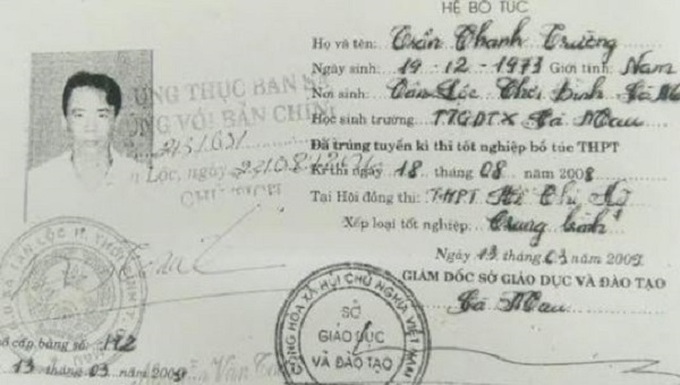 HỆ BỔ TÚC
Họ và tên: Trần Thanh Trường
Ngày sinh: 19 - 12 - 1973 Giới tính: Nam
Nơi sinh: Tân Lộc Thới Bình Cà Mau
Học sinh trường: TTGDTX Cà Mau
Đã trúng tuyển kì thi tốt nghiệp bổ túc THPT
Kì thi ngày 18 tháng 08 năm 2008
Tại Hội đồng thi: THPT
Xếp loại tốt nghiệp: Trung bình
Ngày 13 tháng 03 năm 2009
GIÁM ĐỐC SỞ GIÁO DỤC VÀ ĐÀO TẠO
Cà Mau
THỰC BẢN
VỚI BẢN CHÍNH
Lộc, ngày
CHỦ TỊCH
CỘNG HÒA XÃ HỘI CHỦ NGHĨA VIỆT NAM
SỞ
GIÁO DỤC
VÀ ĐÀO TẠO
cấp bằng số: 112
13 tháng 03 năm 2009